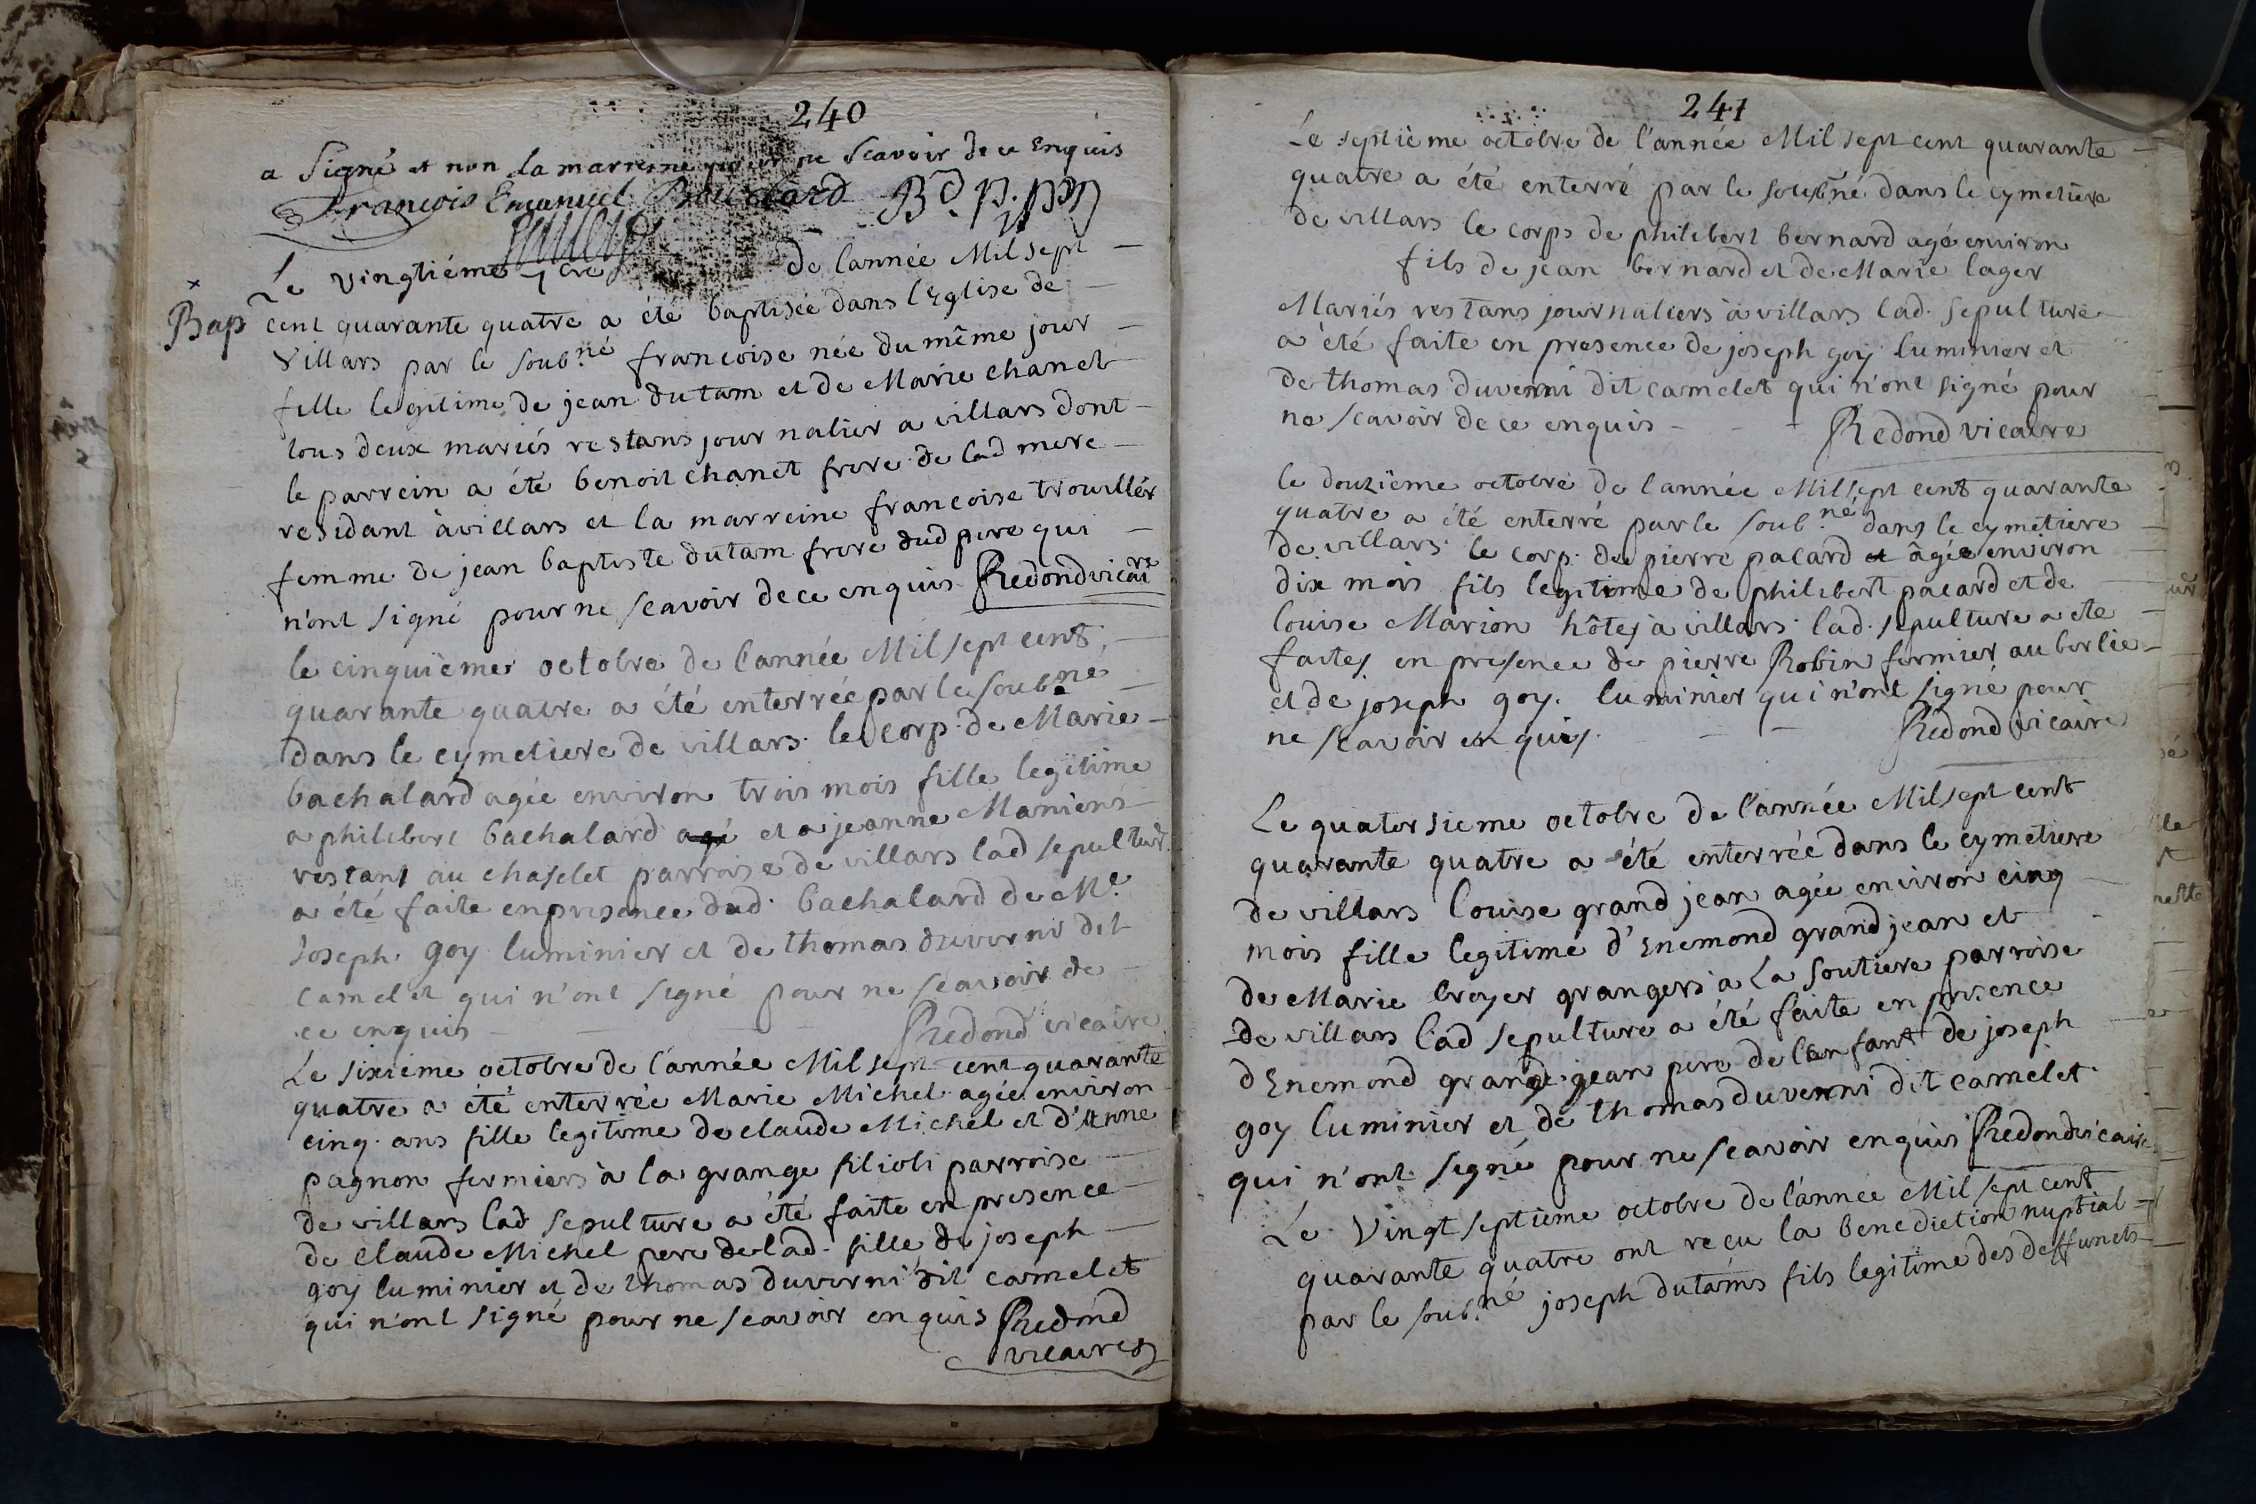 240
a signé et non la marreine pour ne scavoir de ce enquis
François Emanuel Bouchard
Le vingtiéme 7bre de l'année Mil sept
Bap cent quarante quatre a été baptisée dans l'Eglise de
Villars par le soub.né francoise née du même jour
fille legitime de jean dutam et de Marie chanet
tous deux mariés restans journalier a villars dont
le parrein a été benoit chanet frere de lad mere
residant à villars et la marreine francoise trouillér
femme de jean baptiste dutam frere dud pere qui
n'ont signé pour ne scavoir de ce enquis Redond vicaire
le cinquiéme octobre de l'année Mil sept cent
quarante quatre a été enterrée par le soub.né
dans le cymetiere de villars le corp. de Marie
bachalard agée environ trois mois fille legitime
a philibert bachalard agé et a jeanne Maniens
restant au chaselet parroise de villars lad sepultur.
a été faite en presence dud. bachalard de Me.
Joseph goy luminier et de thomas duverni dit
camelet qui n'ont signé pour ne scavoir de
ce enquis Redond vicaire
Le sixiéme octobre de l'année Mil sept cent quarante
quatre a été enterrée Marie Michel agée environ
cinq ans fille legitime de claude Michel et d'Anne
pagnon fermiers à la grange filioli parroise
de villars lad sepulture a été faite en presence
de claude Michel pere de lad. fille de joseph
goy luminier et de thomas duverni dit camelet
qui n'ont signé pour ne scavoir enquis Redond
vicaire
241
Le septiéme octobre de l'année Mil sept cent quarante
quatre a été enterré par le soub.né dans le cymetiere
de villars le corps de philibert bernard agé environ
fils de jean bernard et de Marie lager
Mariés restans journaliers à villars lad. sepulture
a été faite en presence de joseph goy luminier et
de thomas duverni dit camelet qui n'ont signé pour
ne scavoir de ce enquis - - - Redond vicaire
le douziéme octobre de l'année Mil sept cent quarante
quatre a été enterré par le soub.né dans le cymetiere
de villars le corp. de pierre pacard et âgée environ
dix mois fils legitime de philibert pacard et de
louise Marion hôtes à villars lad. sepulture a ete
faites en presence de pierre Robin fermier au berlie
et de joseph goy. luminier qui n'ont signé pour
ne scavoir enquis. - - Redond vicaire
Le quatorsieme octobre de l'année Mil sept cent
quarante quatre a été enterrée dans le cymetiere
de villars louise grand jean agée environ cinq
mois fille legitime d'Enemond grand jean et
de Marie broyer grangers à La soutiere parroise
de villars lad sepulture a été faite en presence
d'Enemond grand jean pere de l'enfant de joseph
goy luminier et de thomas duverni dit camelet
qui n'ont signé pour ne scavoir enquis Redond vicaire
Le vingt septième octobre de l'année Mil sept cent
quarante quatre ont reçu la benediction nuptial
par le soub.né joseph dutams fils legitime des deffuncts